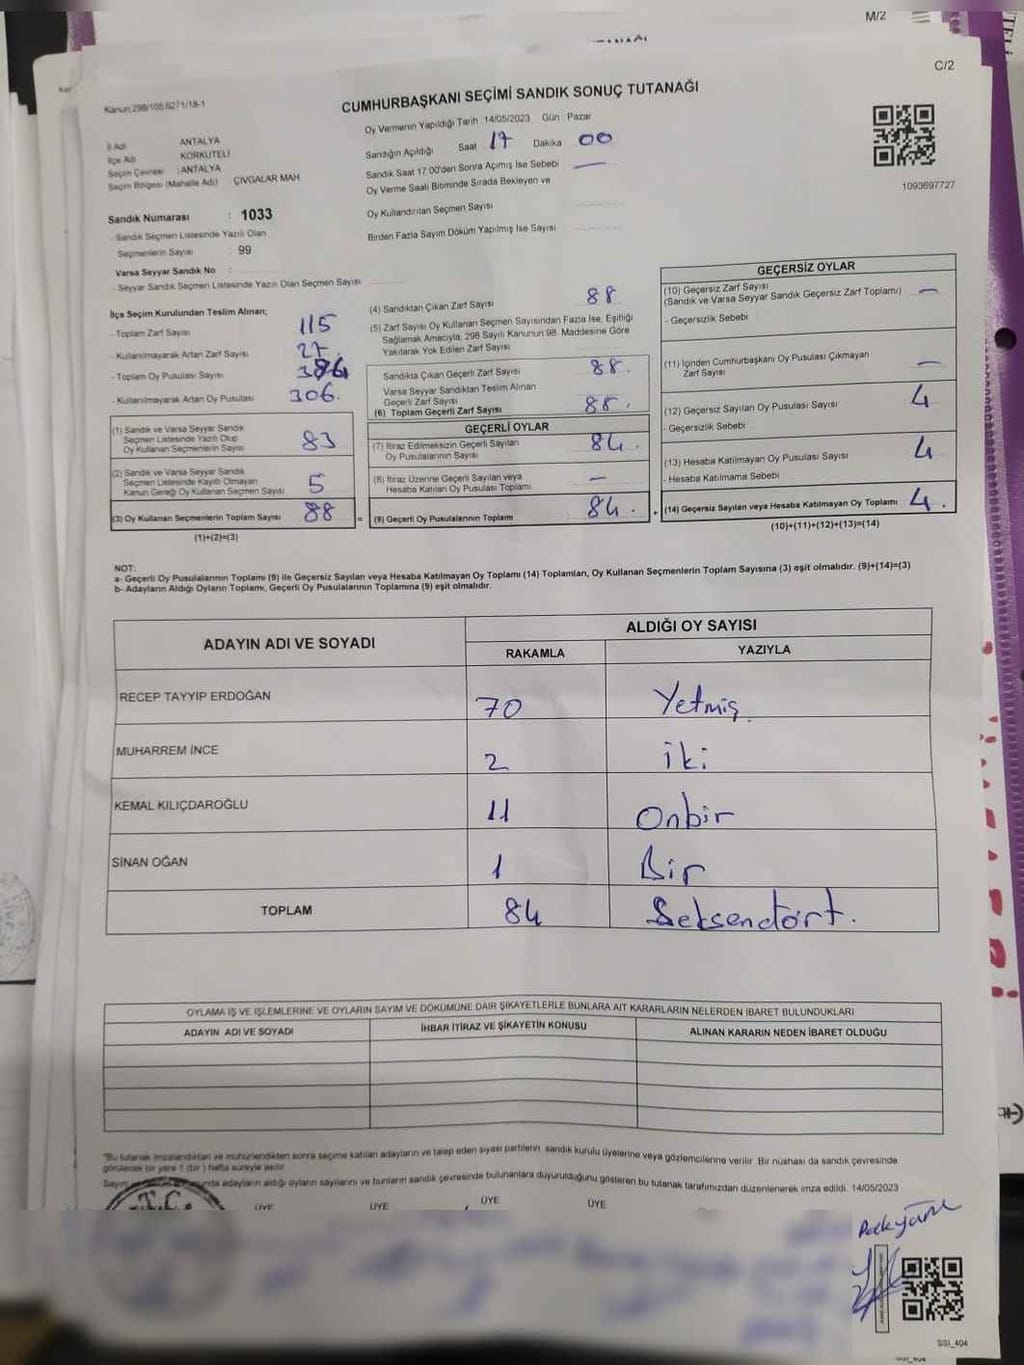 M/2
C/2
Kanun:298/105,6271/18-1
CUMHURBAŞKANI SEÇİMİ SANDIK SONUÇ TUTANAĞI
Oy Vermenin Yapıldığı Tarih :14/05/2023 Gün : Pazar
İl Adı ANTALYA
İlçe Adı KORKUTELİ
Seçim Çevresi : ANTALYA
Seçim Bölgesi (Mahalle Adı) ÇIVGALAR MAH
Sandığın Açıldığı Saat 17 Dakika 00
Sandık Saat 17.00'den Sonra Açılmış İse Sebebi —
Oy Verme Saati Bitiminde Sırada Bekleyen ve
Oy Kullandırılan Seçmen Sayısı
Birden Fazla Sayım Döküm Yapılmış İse Sayısı
1093697727
Sandık Numarası : 1033
- Sandık Seçmen Listesinde Yazılı Olan
Seçmenlerin Sayısı : 99
Varsa Seyyar Sandık No :
- Seyyar Sandık Seçmen Listesinde Yazılı Olan Seçmen Sayısı
İlçe Seçim Kurulundan Teslim Alınan;
- Toplam Zarf Sayısı 115
- Kullanılmayarak Artan Zarf Sayısı 27.
- Toplam Oy Pusulası Sayısı
- Kullanılmayarak Artan Oy Pusulası 306.
(1) Sandık ve Varsa Seyyar Sandık
Seçmen Listesinde Yazılı Olup
Oy Kullanan Seçmenlerin Sayısı 83
(2) Sandık ve Varsa Seyyar Sandık
Seçmen Listesinde Kayıtlı Olmayan
Kanun Gereği Oy Kullanan Seçmen Sayısı 5
(3) Oy Kullanan Seçmenlerin Toplam Sayısı 88
(1)+(2)=(3)
(4) Sandıktan Çıkan Zarf Sayısı 88
(5) Zarf Sayısı Oy Kullanan Seçmen Sayısından Fazla İse, Eşitliği
Sağlamak Amacıyla; 298 Sayılı Kanunun 98. Maddesine Göre
Yakılarak Yok Edilen Zarf Sayısı
Sandıkta Çıkan Geçerli Zarf Sayısı 88.
Varsa Seyyar Sandıktan Teslim Alınan
Geçerli Zarf Sayısı
(6) Toplam Geçerli Zarf Sayısı 88.
GEÇERLİ OYLAR
(7) İtiraz Edilmeksizin Geçerli Sayılan
Oy Pusulalarının Sayısı 84.
(8) İtiraz Üzerine Geçerli Sayılan veya
Hesaba Katılan Oy Pusulası Toplamı —
= (9) Geçerli Oy Pusulalarının Toplamı 84.
GEÇERSİZ OYLAR
(10) Geçersiz Zarf Sayısı
(Sandık ve Varsa Seyyar Sandık Geçersiz Zarf Toplamı) —
- Geçersizlik Sebebi
(11) İçinden Cumhurbaşkanı Oy Pusulası Çıkmayan
Zarf Sayısı —
(12) Geçersiz Sayılan Oy Pusulası Sayısı 4
- Geçersizlik Sebebi
(13) Hesaba Katılmayan Oy Pusulası Sayısı 4
- Hesaba Katılmama Sebebi
+ (14) Geçersiz Sayılan veya Hesaba Katılmayan Oy Toplamı 4.
(10)+(11)+(12)+(13)=(14)
NOT:
a- Geçerli Oy Pusulalarının Toplamı (9) ile Geçersiz Sayılan veya Hesaba Katılmayan Oy Toplamı (14) Toplamları, Oy Kullanan Seçmenlerin Toplam Sayısına (3) eşit olmalıdır. (9)+(14)=(3)
b- Adayların Aldığı Oyların Toplamı, Geçerli Oy Pusulalarının Toplamına (9) eşit olmalıdır.
ADAYIN ADI VE SOYADI ALDIĞI OY SAYISI
RAKAMLA YAZIYLA
RECEP TAYYİP ERDOĞAN 70 Yetmiş.
MUHARREM İNCE 2 iki
KEMAL KILIÇDAROĞLU 11 Onbir
SİNAN OĞAN 1 Bir
TOPLAM 84 Seksendört.
OYLAMA İŞ VE İŞLEMLERİNE VE OYLARIN SAYIM VE DÖKÜMÜNE DAİR ŞİKAYETLERLE BUNLARA AİT KARARLARIN NELERDEN İBARET BULUNDUKLARI
ADAYIN ADI VE SOYADI İHBAR İTİRAZ VE ŞİKAYETİN KONUSU ALINAN KARARIN NEDEN İBARET OLDUĞU
"Bu tutanak imzalandıktan ve mühürlendikten sonra seçime katılan adayların ve talep eden siyasi partilerin sandık kurulu üyelerine veya gözlemcilerine verilir. Bir nüshası da sandık çevresinde
görülecek bir yere 1 (bir) hafta süreyle asılır.
adayların aldığı oyların sayılarını ve bunların sandık çevresinde bulunanlara duyurulduğunu gösteren bu tutanak tarafımızdan düzenlenerek imza edildi. 14/05/2023
T.C.
ÜYE ÜYE ÜYE ÜYE
SSI_404